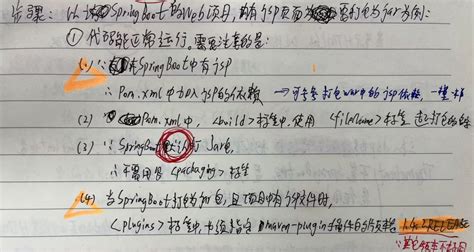 步骤: 以SpringBoot的Web项目,有jsp页面 需打包为jar为例:
① 代码能正常运行。需要注意的是:
(1) ∵ SpringBoot中有jsp
∴ Pom.xml中加入jsp的依赖 → 可参考打包war中的jsp依赖,一模一样
(2) Pom.xml中,<build>标签中,使用<fileName>标签 打包的名称
(3) ∵ SpringBoot默认打Jar包,
∴ 不需用写<packaging>标签
(4) 当SpringBoot打包为jar包,且项目中有jsp文件时,
<plugins>标签中,必须指定maven-plugin插件的版本是 1.4.2RELEASE
∵ 其它版本不可用